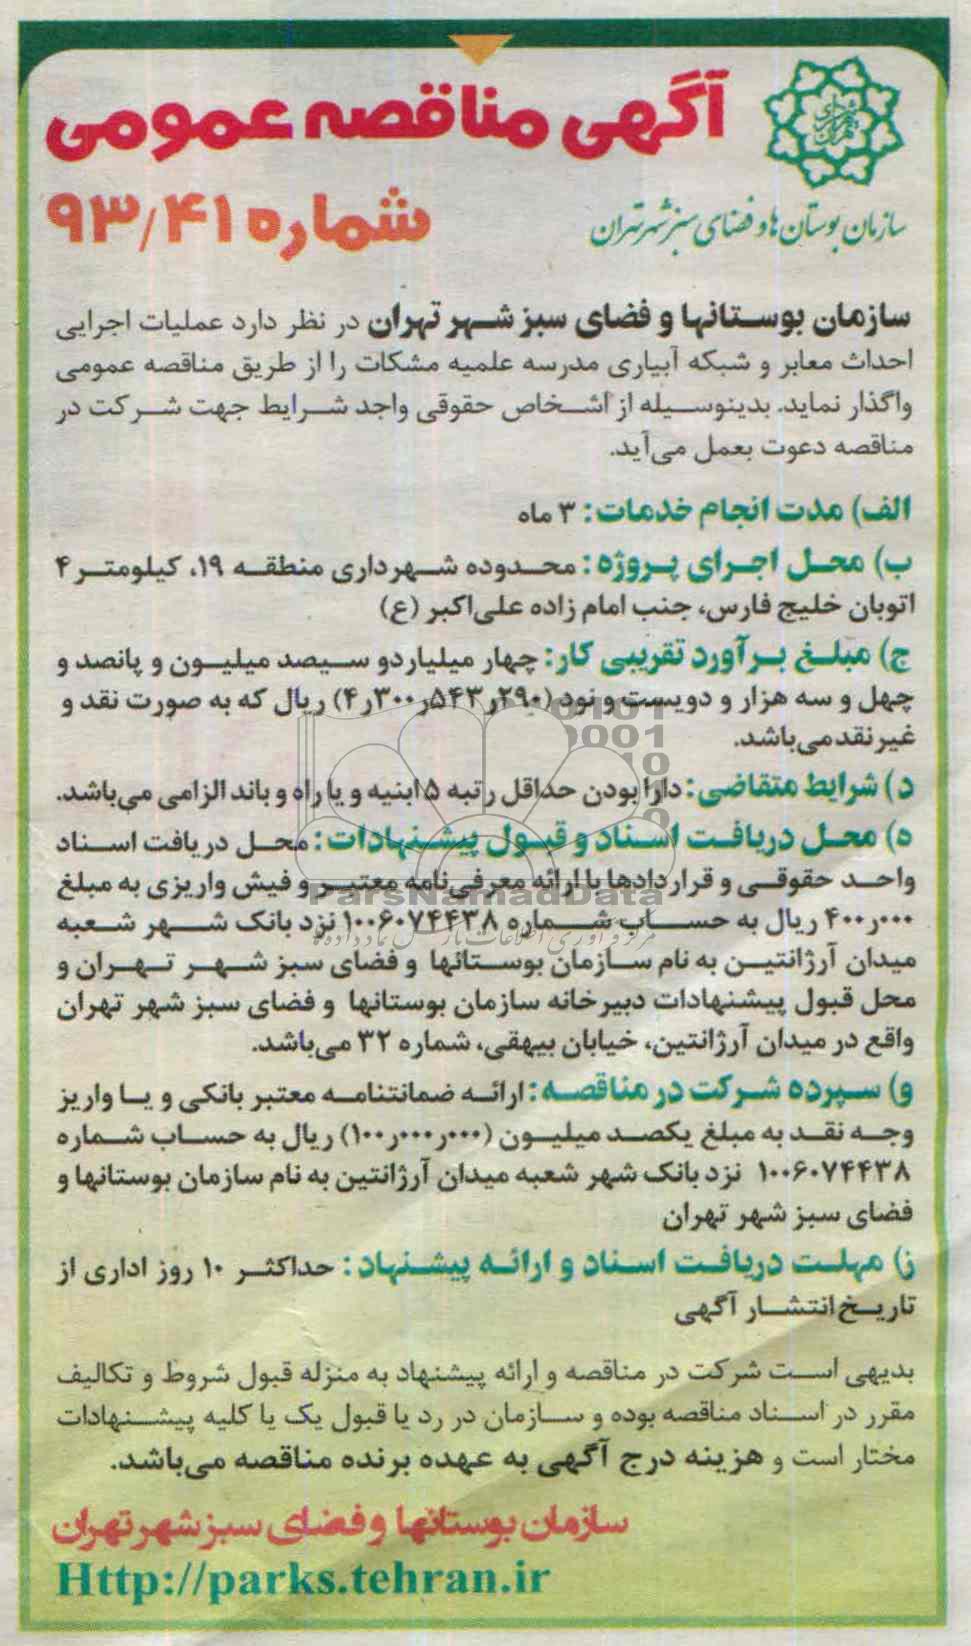 آگهی مناقصه عمومی
شماره ۹۳/۴۱
سازمان بوستان ها و فضای سبز شهر تهران
سازمان بوستانها و فضای سبز شهر تهران در نظر دارد عملیات اجرایی
احداث معابر و شبکه آبیاری مدرسه علمیه مشکات را از طریق مناقصه عمومی
واگذار نماید. بدینوسیله از اشخاص حقوقی واجد شرایط جهت شرکت در
مناقصه دعوت بعمل می‌آید.
الف) مدت انجام خدمات: ۳ ماه
ب) محل اجرای پروژه: محدوده شهرداری منطقه ۱۹، کیلومتر ۴
اتوبان خلیج فارس، جنب امام زاده علی‌اکبر (ع)
ج) مبلغ برآورد تقریبی کار: چهار میلیاردو سیصد میلیون و پانصد و
چهل و سه هزار و دویست و نود (۴٫۳۰۰٫۵۴۳٫۲۹۰) ریال که به صورت نقد و
غیرنقد می‌باشد.
د) شرایط متقاضی: دارا بودن حداقل رتبه ۵ ابنیه و یا راه و باند الزامی می‌باشد.
ه) محل دریافت اسناد و قبول پیشنهادات: محل دریافت اسناد
واحد حقوقی و قراردادها با ارائه معرفی‌نامه معتبر و فیش واریزی به مبلغ
۴۰۰٫۰۰۰ ریال به حساب شماره ۱۰۰۶۰۷۴۴۳۸ نزد بانک شهر شعبه
میدان آرژانتین به نام سازمان بوستانها و فضای سبز شهر تهران و
محل قبول پیشنهادات دبیرخانه سازمان بوستانها و فضای سبز شهر تهران
واقع در میدان آرژانتین، خیابان بیهقی، شماره ۳۲ می‌باشد.
و) سپرده شرکت در مناقصه: ارائه ضمانتنامه معتبر بانکی و یا واریز
وجه نقد به مبلغ یکصد میلیون (۱۰۰٫۰۰۰٫۰۰۰) ریال به حساب شماره
۱۰۰۶۰۷۴۴۳۸ نزد بانک شهر شعبه میدان آرژانتین به نام سازمان بوستانها و
فضای سبز شهر تهران
ز) مهلت دریافت اسناد و ارائه پیشنهاد: حداکثر ۱۰ روز اداری از
تاریخ انتشار آگهی
بدیهی است شرکت در مناقصه و ارائه پیشنهاد به منزله قبول شروط و تکالیف
مقرر در اسناد مناقصه بوده و سازمان در رد یا قبول یک یا کلیه پیشنهادات
مختار است و هزینه درج آگهی به عهده برنده مناقصه می‌باشد.
سازمان بوستانها و فضای سبز شهر تهران
Http://parks.tehran.ir
ParsNamadData